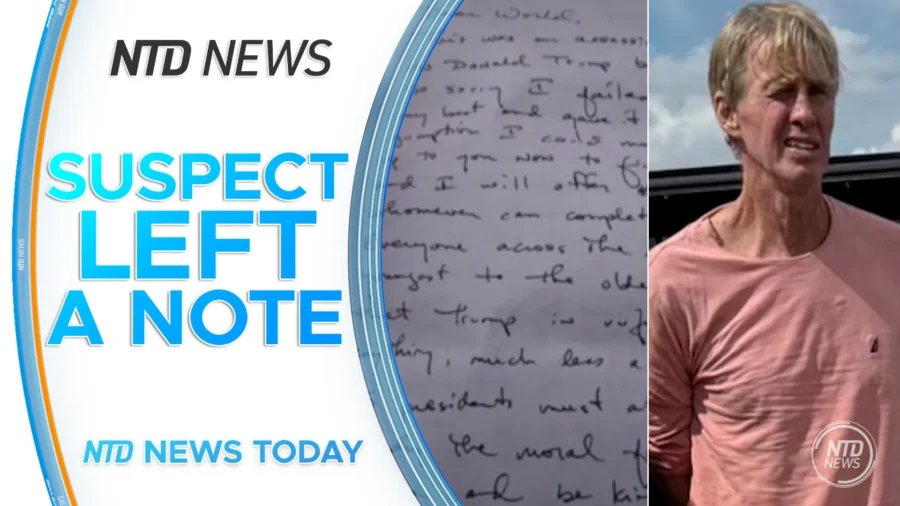 NTD NEWS
SUSPECT
LEFT
A NOTE
NTD NEWS TODAY
World,
was an assassi
Donald Trump b
sorry I failed
best and gave it
I could m
to you now to fi
I will offer
whomever can complet
everyone across the
to the olde
Trump is unf
much less a
residents must a
The moral f
and be kin
NTD
NEWS
NTD NEWS
NTD